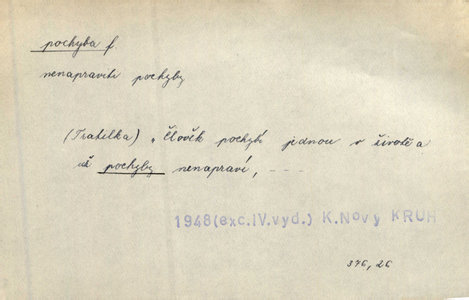 pochyba f.
nenapraviti pochyby
(Tratilka) „Člověk pochybí jednou v životě a
už pochyby nenapraví, ---
1948(exc.IV.vyd.) K.Nový KRUH
376, 26